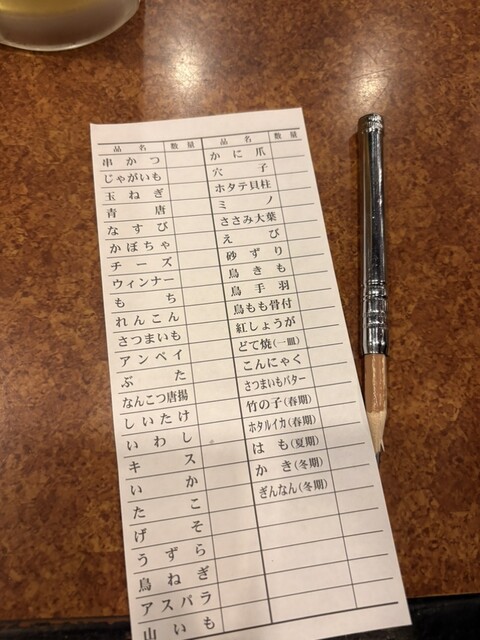 品名 数量
串かつ
じゃがいも
玉ねぎ
青唐
なすび
かぼちゃ
チーズ
ウィンナー
もち
れんこん
さつまいも
アンペイ
ぶた
なんこつ唐揚
しいたけ
いわし
キス
いか
たこ
げそ
うずら
鳥ねぎ
アスパラ
山いも
品名 数量
かに爪
穴子
ホタテ貝柱
ミノ
ささみ大葉
えび
砂ずり
鳥きも
鳥手羽
鳥もも骨付
紅しょうが
どて焼(一皿)
こんにゃく
さつまいもバター
竹の子(春期)
ホタルイカ(春期)
はも(夏期)
かき(冬期)
ぎんなん(冬期)